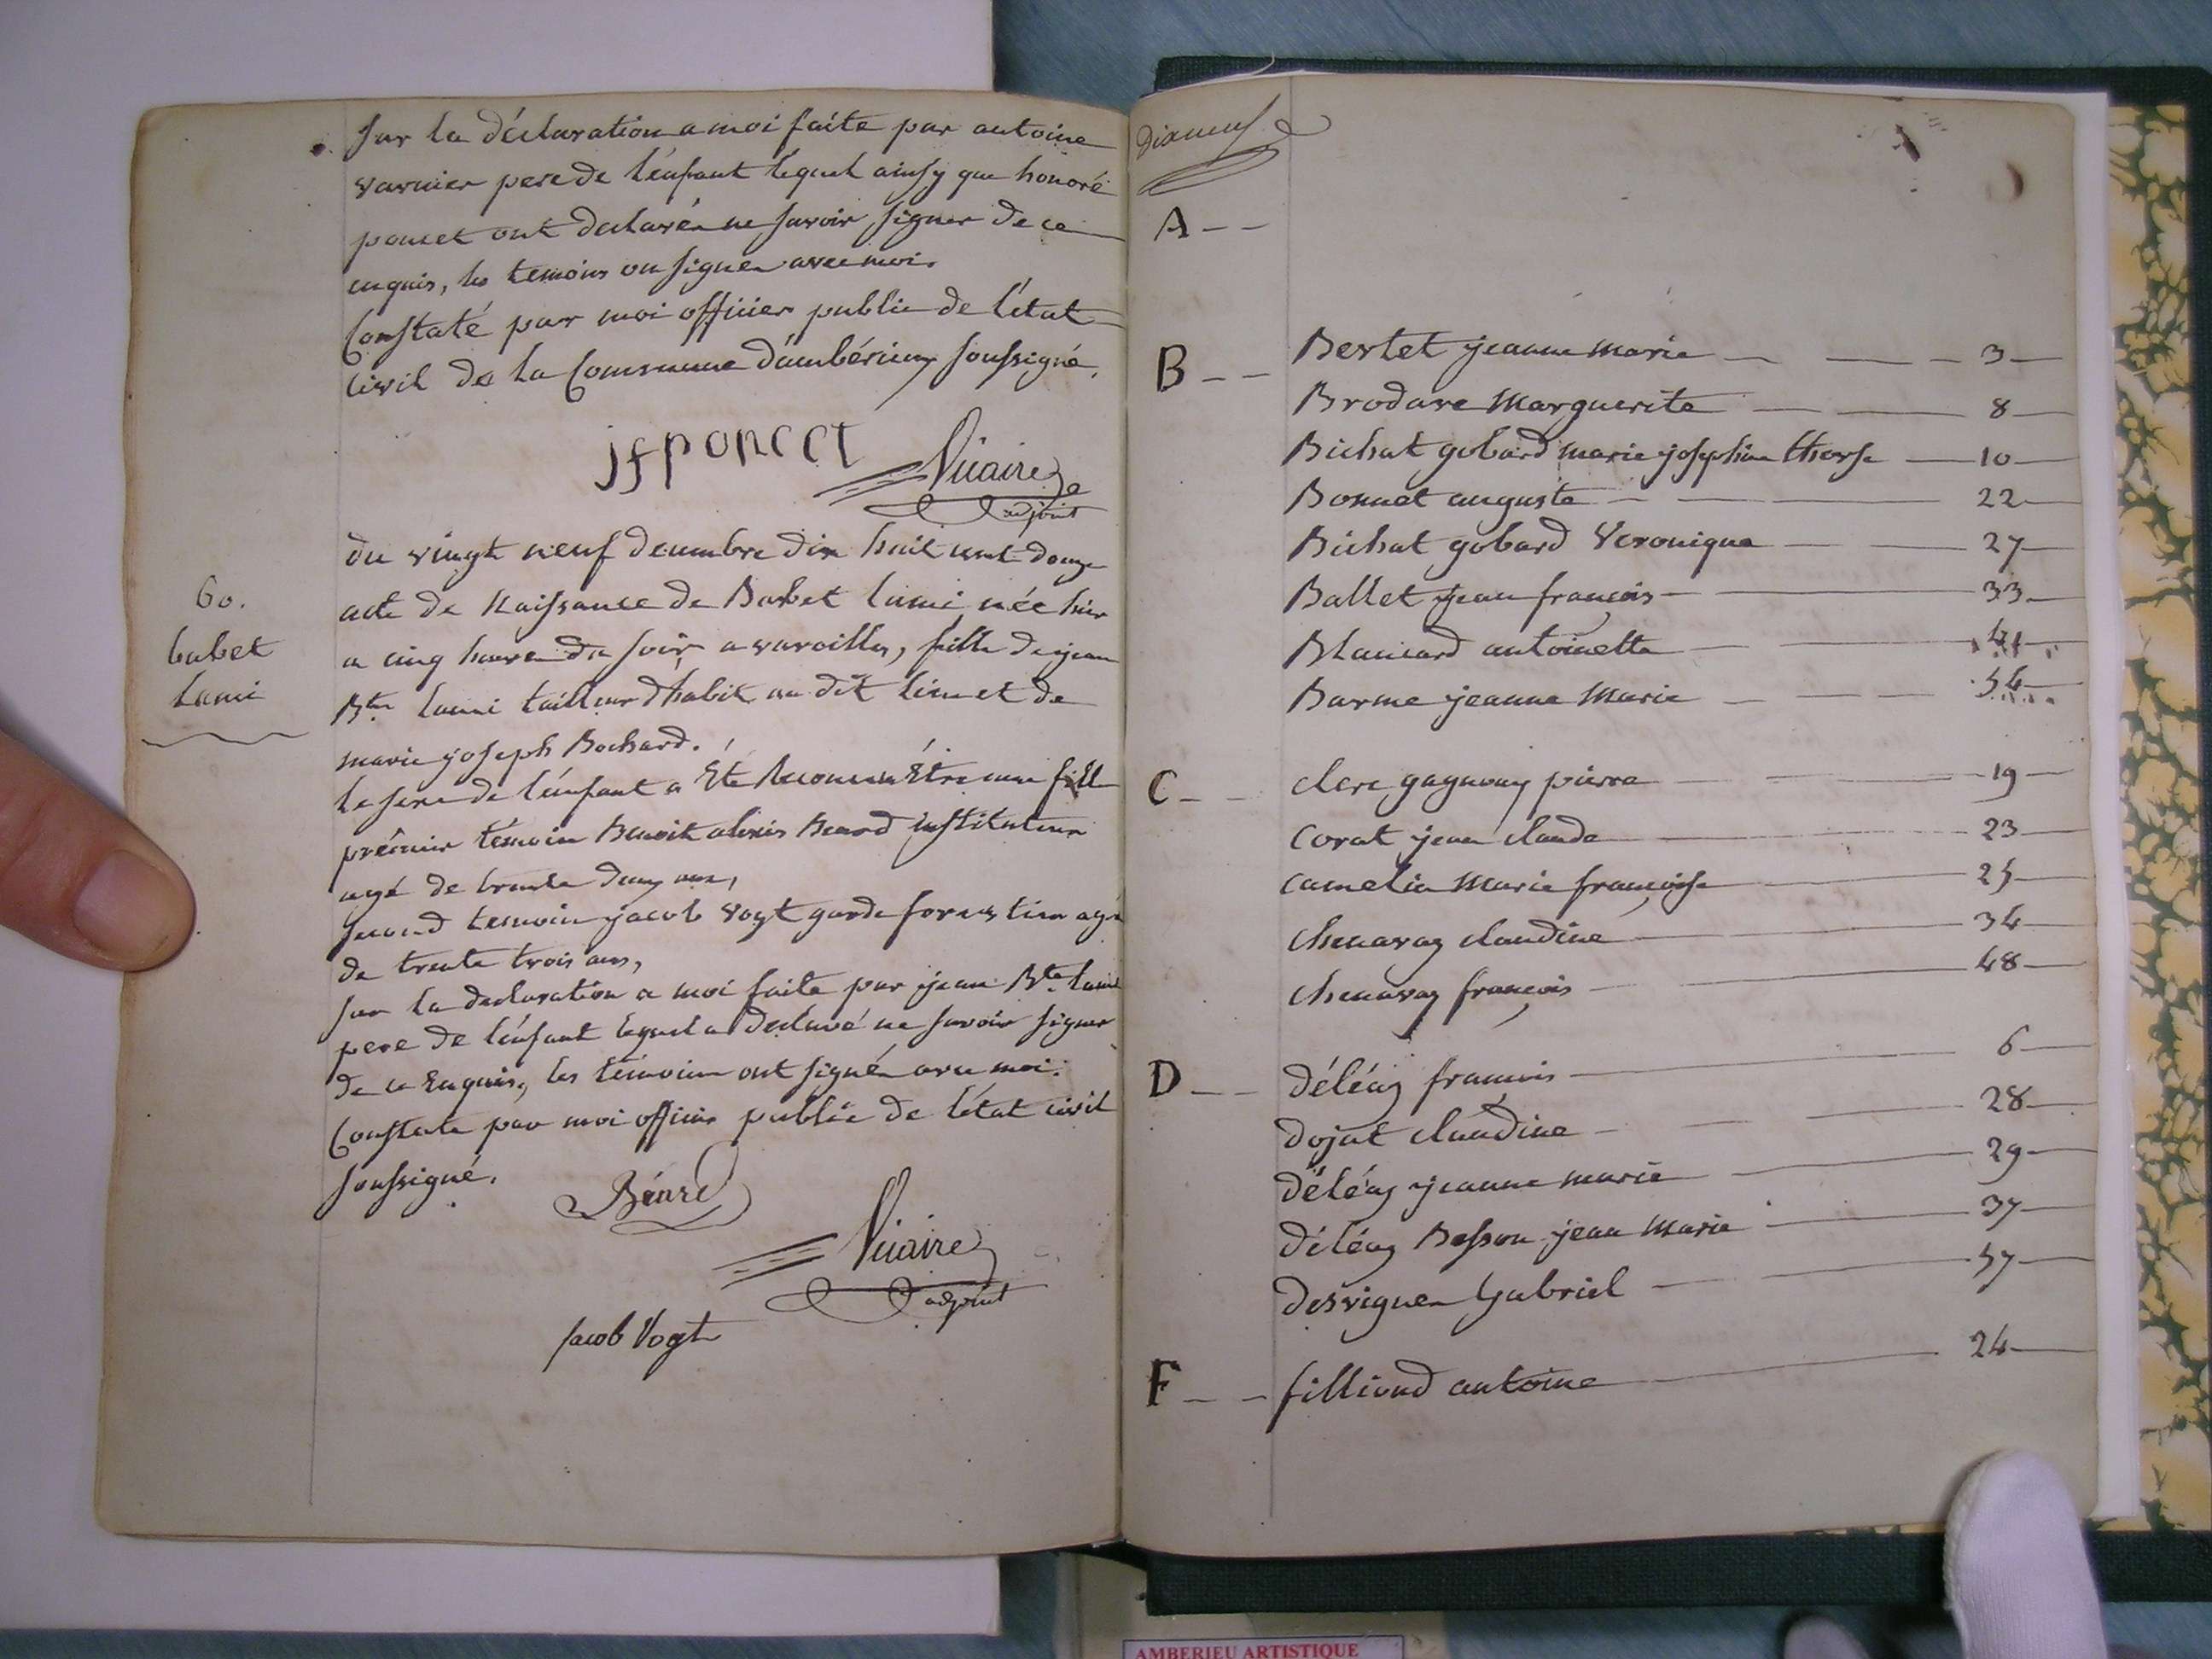 Sur la déclaration a moi faite par antoine
varnier pere de l'enfant lequel ainsy que honoré
poncet ont declaré ne savoir signer de ce
enquis, les temoins on signé avec moi.
Constaté par moi officier public de l'état
Civil de la Commune d'ambérieux soussigné.
jf poncet
Vicaire
adjoint
60.
babet
Lami
du vingt neuf decembre dix huit cent douze
acte de Naissance de Babet lami née hier
a cinq heure du soir a vareilles, fille de jean
Bte lami tailleur d'habit au dit lieu et de
marie joseph Bochard.
le sexe de l'enfant a été Reconnu Être une fille
prémier témoin Benoit alexis Beard instituteur
agé de trente deux ans,
second temoin jacob Vogt garde forestier agé
de trente trois ans,
sur la declaration a moi faite par jean Bte lami
pere de l'enfant lequel a declaré ne savoir signer
de ce Enquis, les témoins ont signé avec moi.
Constaté par moi officier public de l'état civil
soussigné.
Béard
Vicaire
adjoint
Jacob Vogt
dixneuf
A
B
Bertet jeanne marie 3
Brodare Marguerite 8
Bichat gobard marie josephine therese 10
Bonnet auguste 22
Bichat gobard Veronique 27
Ballet jean françois 33
Blancard antoinette 41
Barme jeanne Marie 54
C
clerc gagnoux pierre 19
Corat jean claude 23
camelin Marie françoise 25
chenavaz claudine 34
chenavaz françois 48
D
déléaz francois 6
dojat claudine 28
déléaz jeanne marie 29
déléaz Besson jean Marie 37
desvignes Gabriel 57
F
filliond antoine 24
AMBERIEU ARTISTIQUE